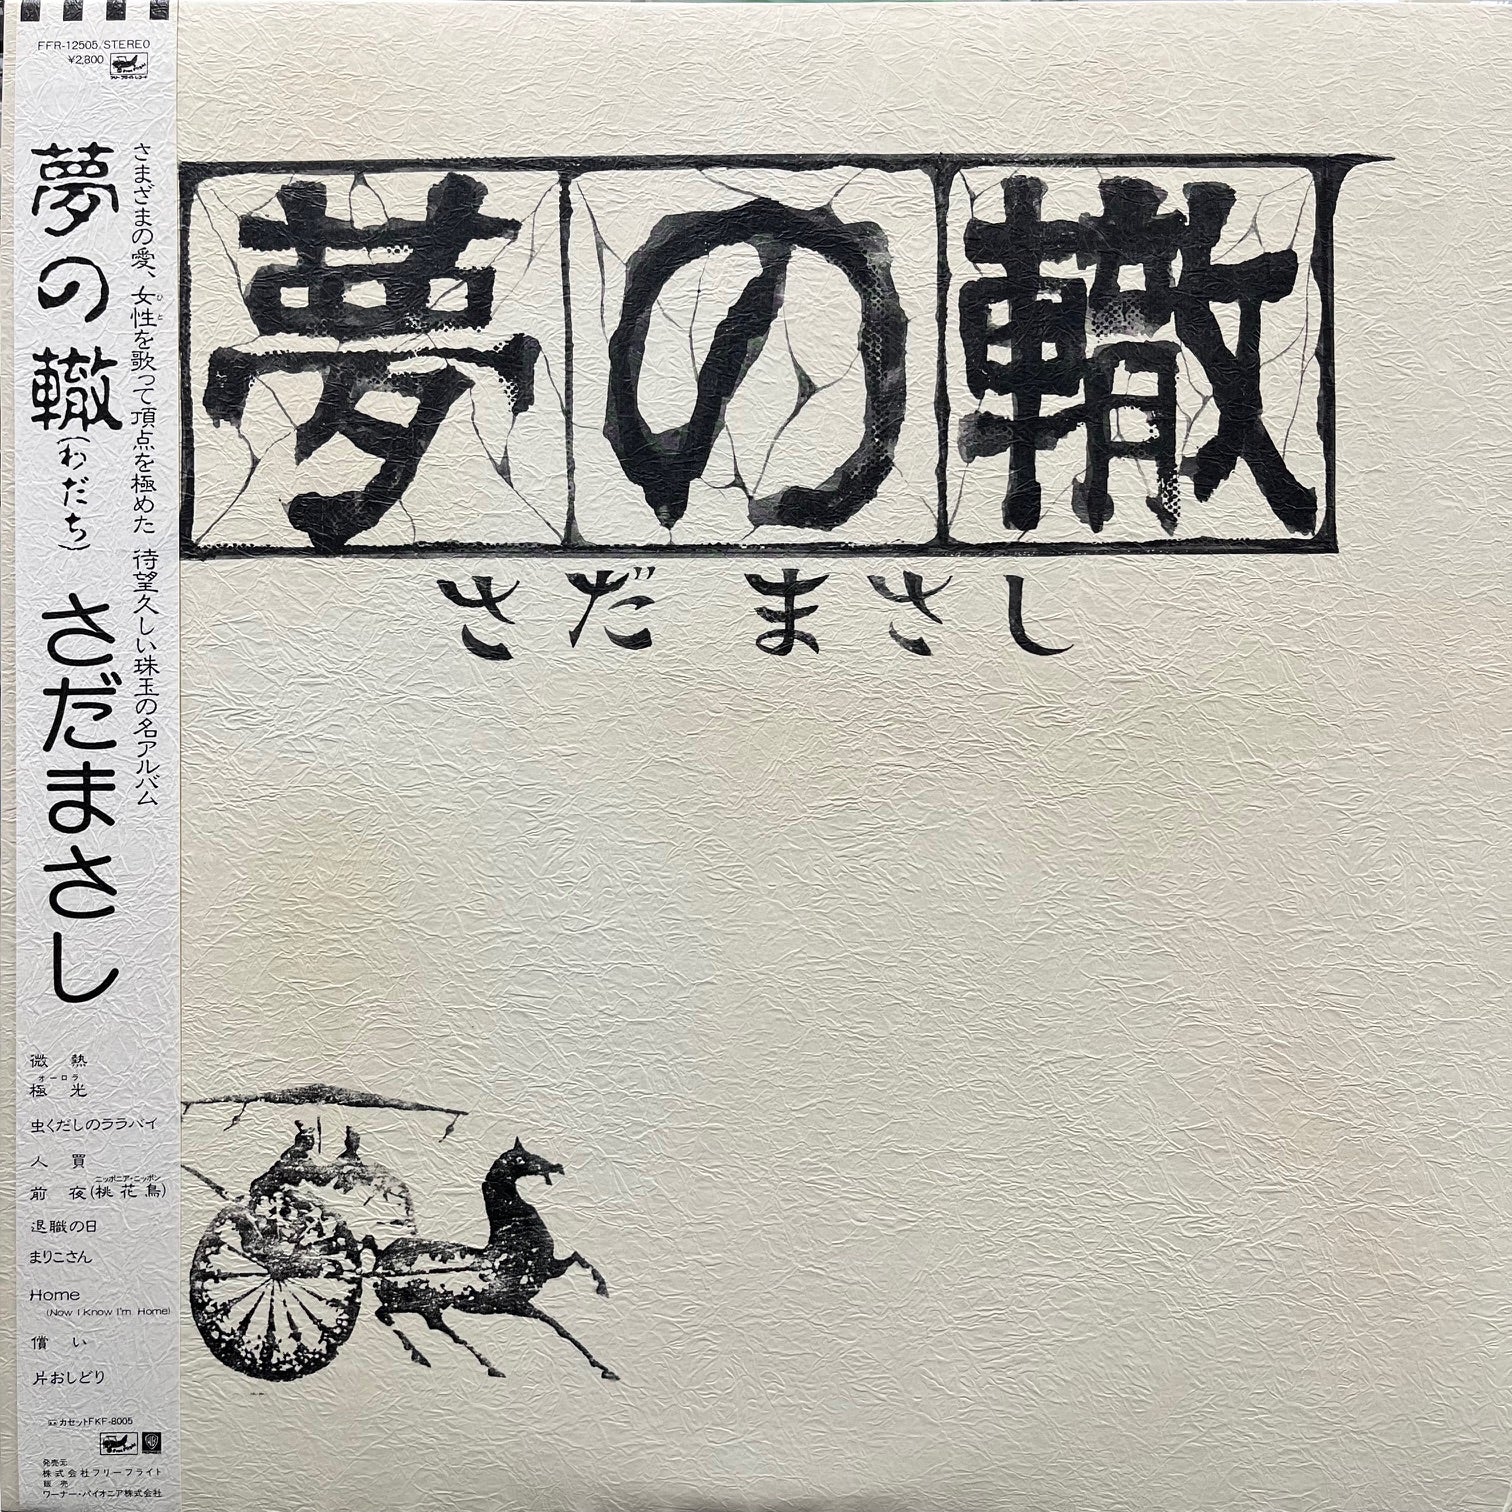 FFR-12505/STEREO
¥2,800
夢の轍
(わだち)
さだまさし
さまざまの愛、女性を歌って頂点を極めた 待望久しい珠玉の名アルバム
ひと
夢の轍
さだ まさし
微熱
オーロラ
極光
虫くだしのララバイ
人買
ニッポニア・ニッポン
前夜(桃花鳥)
退職の日
まりこさん
Home
(Now I Know I'm Home)
償い
片おしどり
カセットFKF-8005
発売元
株式会社フリーフライト
販売
ワーナー・パイオニア株式会社